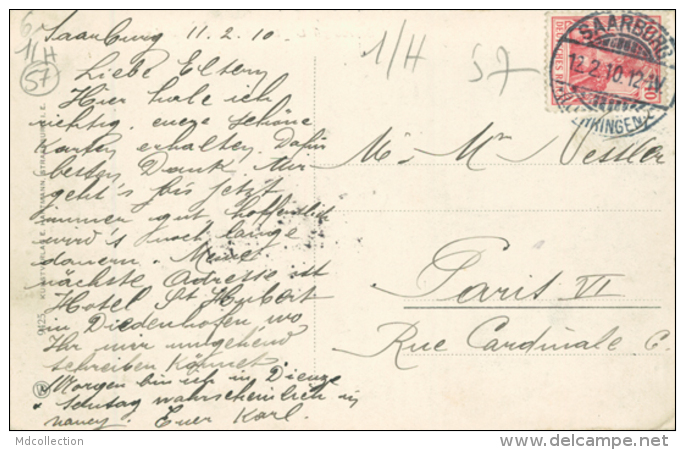 Saarburg 11.2.10.
Liebe Eltern
Hier habe ich
richtig eure schöne
Karten erhalten. Dafür
besten Dank. Mir
geht's bis jetzt
immer gut, hoffentlich
wird's noch lange
dauern. Meine
nächste Adresse ist
Hotel St Hubert
in Diedenhofen, wo
Ihr mir umgehend
schreiben könnet.
Morgen bin ich in Dieuze
Sonntag wahrscheinlich in
nancy. Euer Karl.
1/H
57
1/H 57
SAARBURG
12.2.10.12-1V.
DEUTSCHES REICH
10
M. Mme Vesller
Paris VI
Rue Cardinale 6.
Mdcollection
www.delcampe.net